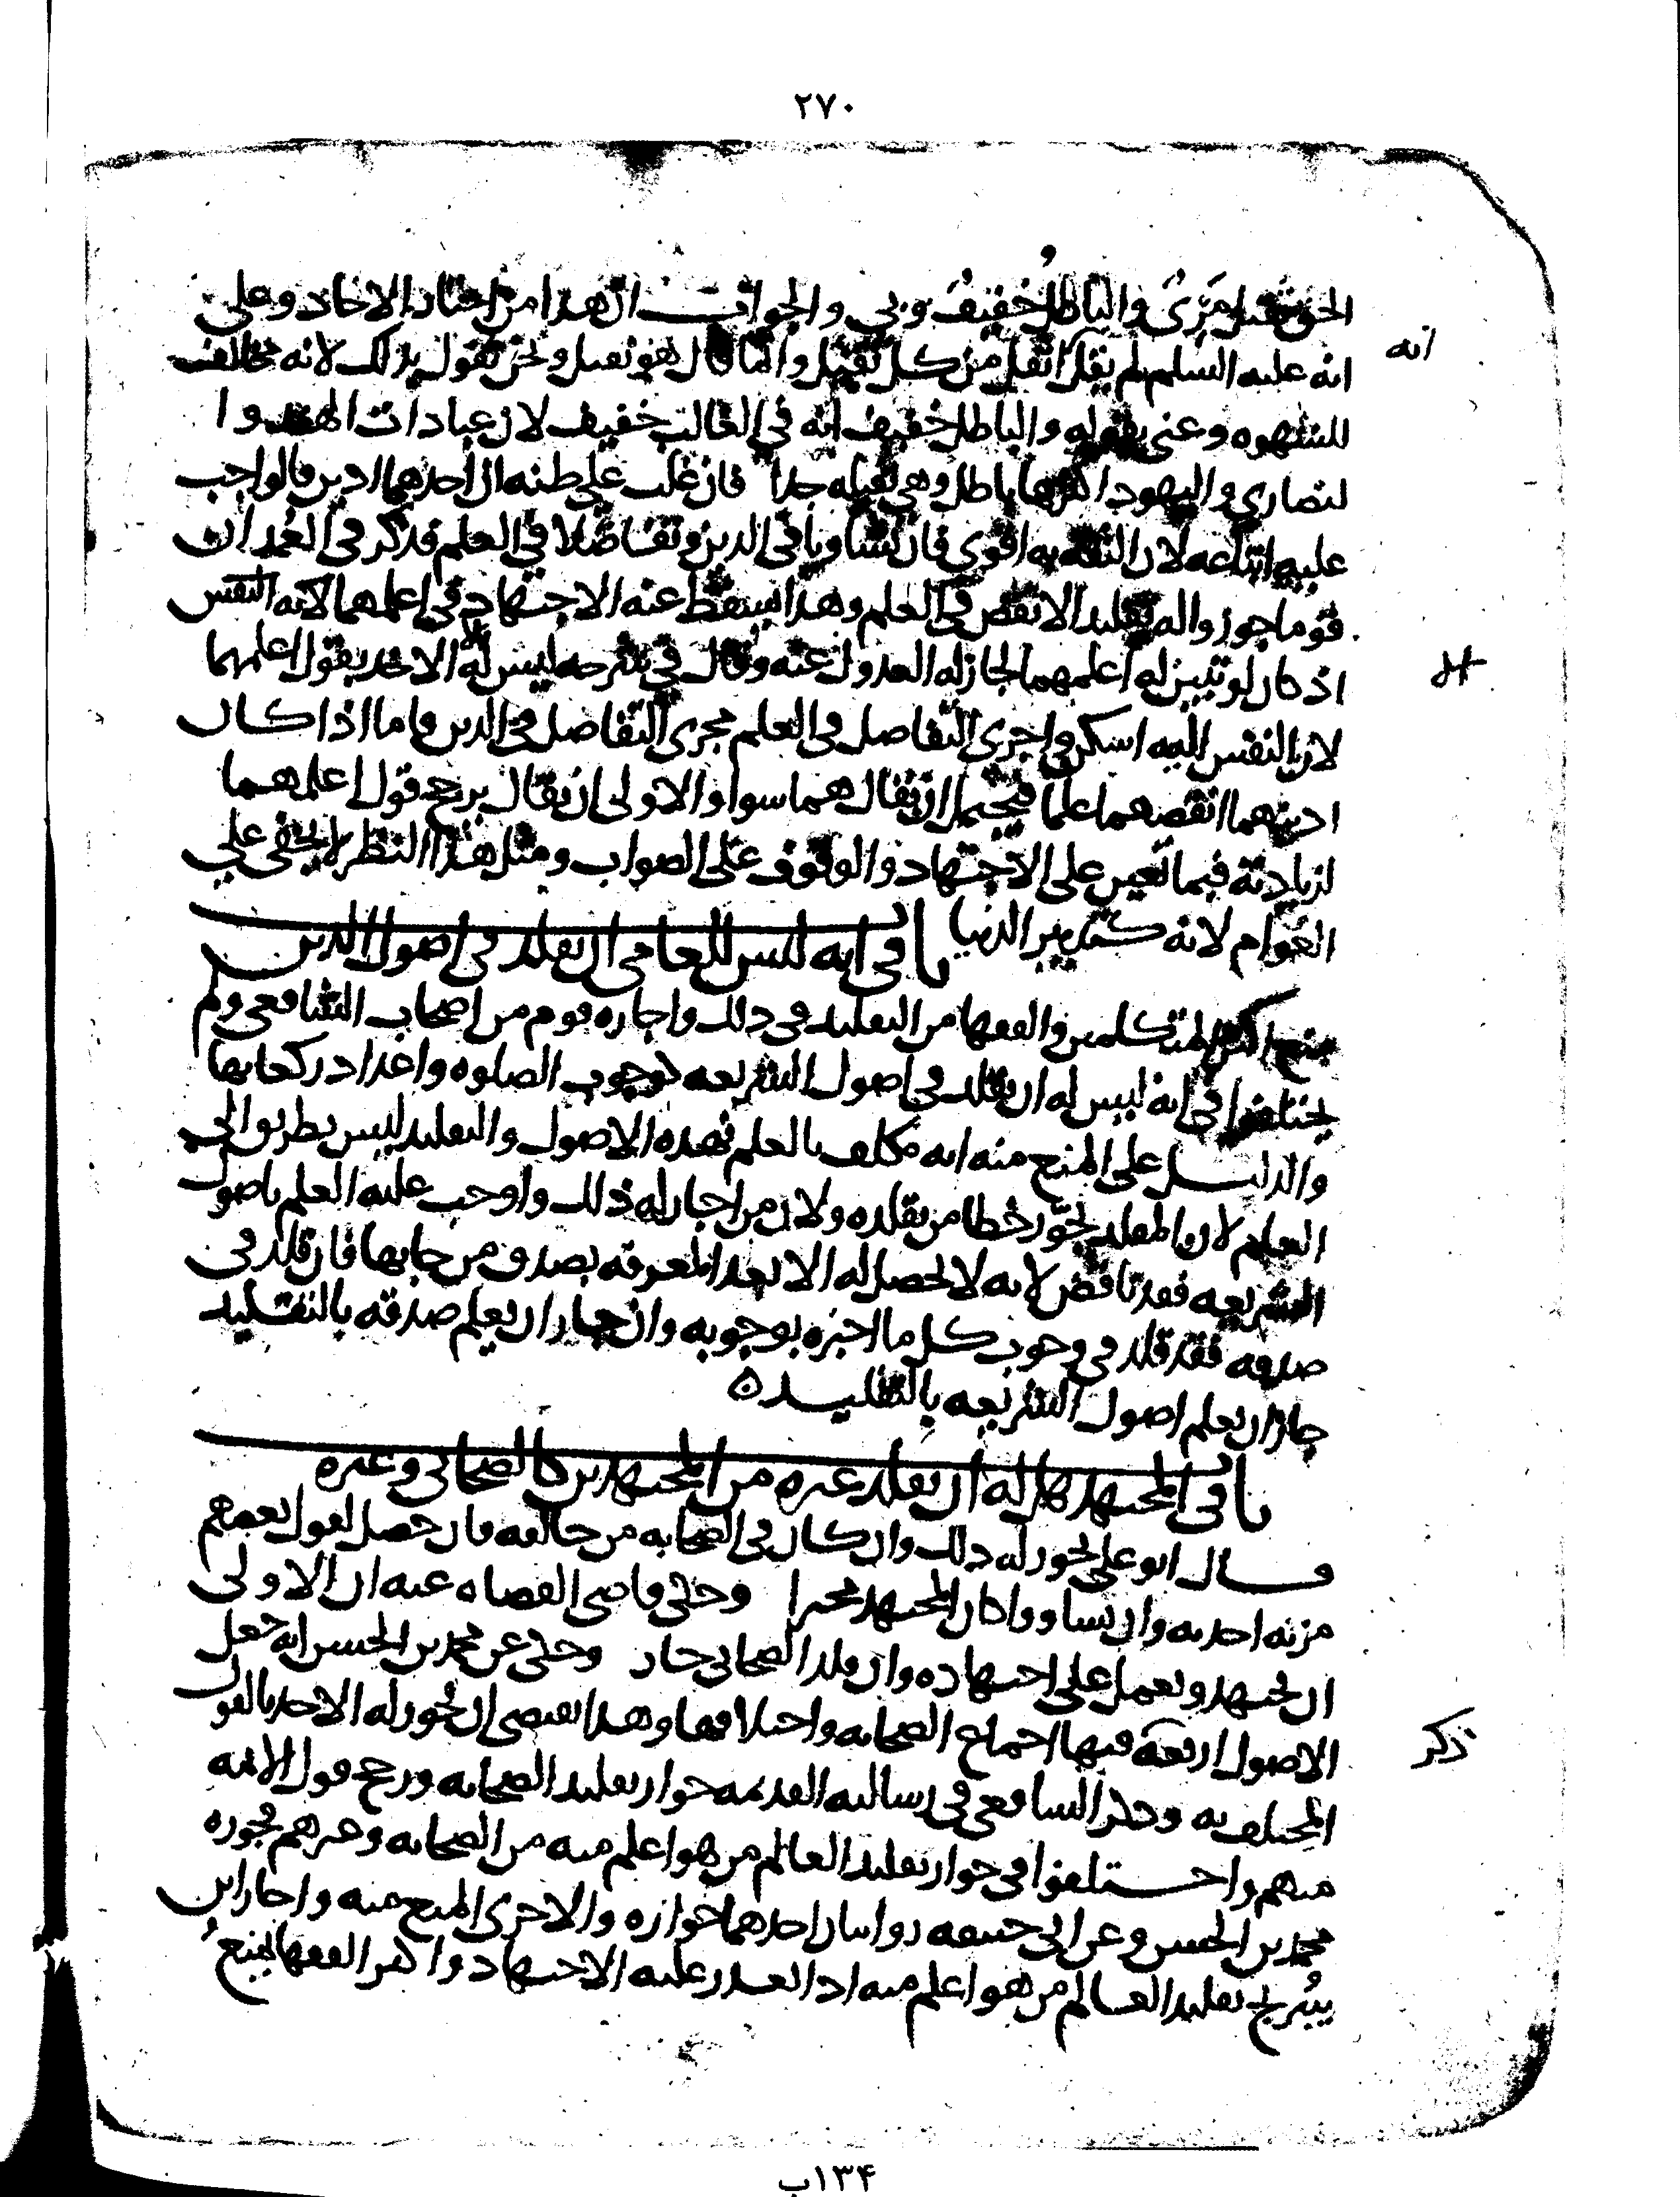 ٢٧٠
الحق ثقيل مرى والباطل خفيف وبى والجواب ان هذا من اخبار الاحاد وعلى
انه
انه عليه السلم لم يقل اثقل من كل ثقيل وانما قال هو ثقيل ونحن نقول بذلك لانه مخالف
للشهوه وعنى بقوله والباطل خفيف انه في الغالب خفيف لان عبادات الهند وا
لنصارى واليهود اكثرها باطل وهى ثقيله جدا فان غلب على ظنه ان احدهما ادين فالواجب
عليه اتباعه لان الثقه به اقوى فان تساويا في الدين وتفاضلا في العلم فذكر في العُمد ان
قوما جوزوا له تقليد الانقص في العلم وهذا يسقط عنه الاجتهاد في اعلمهما لانه النفس
اذ كان لو تبين له اعلمهما لجاز له العدول عنه وقال في شرحه ليس له الا الاخذ بقول اعلمهما
لان النفس اليه اسكن واجرى التفاضل في العلم مجرى التفاضل في الدين واما اذا كان
ادينهما انقصهما علما فيحتمل ان يقال هما سوا والاولى ان يقال يرجح قول اعلمهما
لزيادته فيما تعين على الاجتهاد والوقوف على الصواب ومثل هذا النظر لا يخفى على
العوام لانه كتدبير الدنيا باب في انه ليس للعامى ان يقلد في اصول الدين
منع اكثر المتكلمين والفقها من التقليد في ذلك واجازه قوم من اصحاب الشافعى ولم
يختلفوا في انه ليس له ان يقلد في اصول الشريعه كوجوب الصلوه واعداد ركعاتها
والدليل على المنع منه انه مكلف بالعلم بهذه الاصول والتقليد ليس بطريق الى
العلم لان المقلد يجوّز خطا من يقلده ولان من اجاز له ذلك واوجب عليه العلم باصول
الشريعه فقد ناقض لانه لا يحصل له الا بعد المعرفه بصدق من جا بها فان قلد في
صدقه فقد قلد في وجوب كل ما اخبره بوجوبه وان جاز ان يعلم صدقه بالتقليد
جاز ان يعلم اصول الشريعه بالتقليد ه
باب في المجتهد هل له ان يقلد غيره من المجتهدين كالصحابى وغيره
قال ابو على يجوز له ذلك وان كان في الصحابه من خالفه فان حصل لقول بعضهم
مزيه اخذ به وان تساووا كان المجتهد مخيرا وحكى قاضى القضاه عنه ان الاولى
ان يجتهد ويعمل على اجتهاده وان قلد الصحابى جاز وحكى عن محمد بن الحسن انه جعل
الاصول اربعة فيها اجماع الصحابه واختلافها وهذا يقتضى ان يجوز له الاخذ بالقول
ذكر
المختلف به وذكر الشافعى في رسالته القديمه جواز تقليد الصحابه ورجح قول الائمه
منهم واختلفوا في جواز تقليد العالم من هو اعلم منه من الصحابه وغيرهم فجوزه
محمد بن الحسن وعن ابى حنيفه روايتان احدهما جوازه والاخرى المنع منه واجاز ابن
سُريج تقليد العالم من هو اعلم منه اذا تعذر عليه الاجتهاد واكثر الفقها يمنع
١٣۴ب